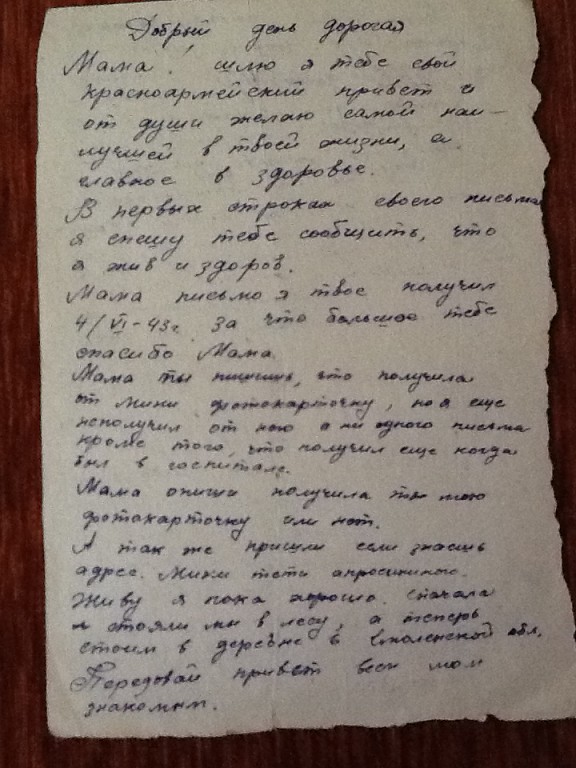 Добрый день дорогая
Мама! шлю я тебе свой
красноармейский привет и
от души желаю самой наи-
лучшей в твоей жизни, а
главное в здоровье.
В первых строках своего письма
я спешу тебе сообщить, что
я жив и здоров.
Мама письмо я твое получил
4/VI-43г. за что большое тебе
спасибо Мама.
Мама ты пишишь, что получила
от Мики фотокарточку, но я еще
неполучил от ною а ни одного письма
кроме того, что получил еще когда
был в госпитале.
Мама опиши получила ты мою
фотокарточку или нет.
А так же пришли если знаешь
адрес. Мики тети
Живу я пока хорошо. сначала
стояли мы в лесу, а теперь
стоим в деревне в Смоленской обл.
Передовай привет всем моим
знакомым.